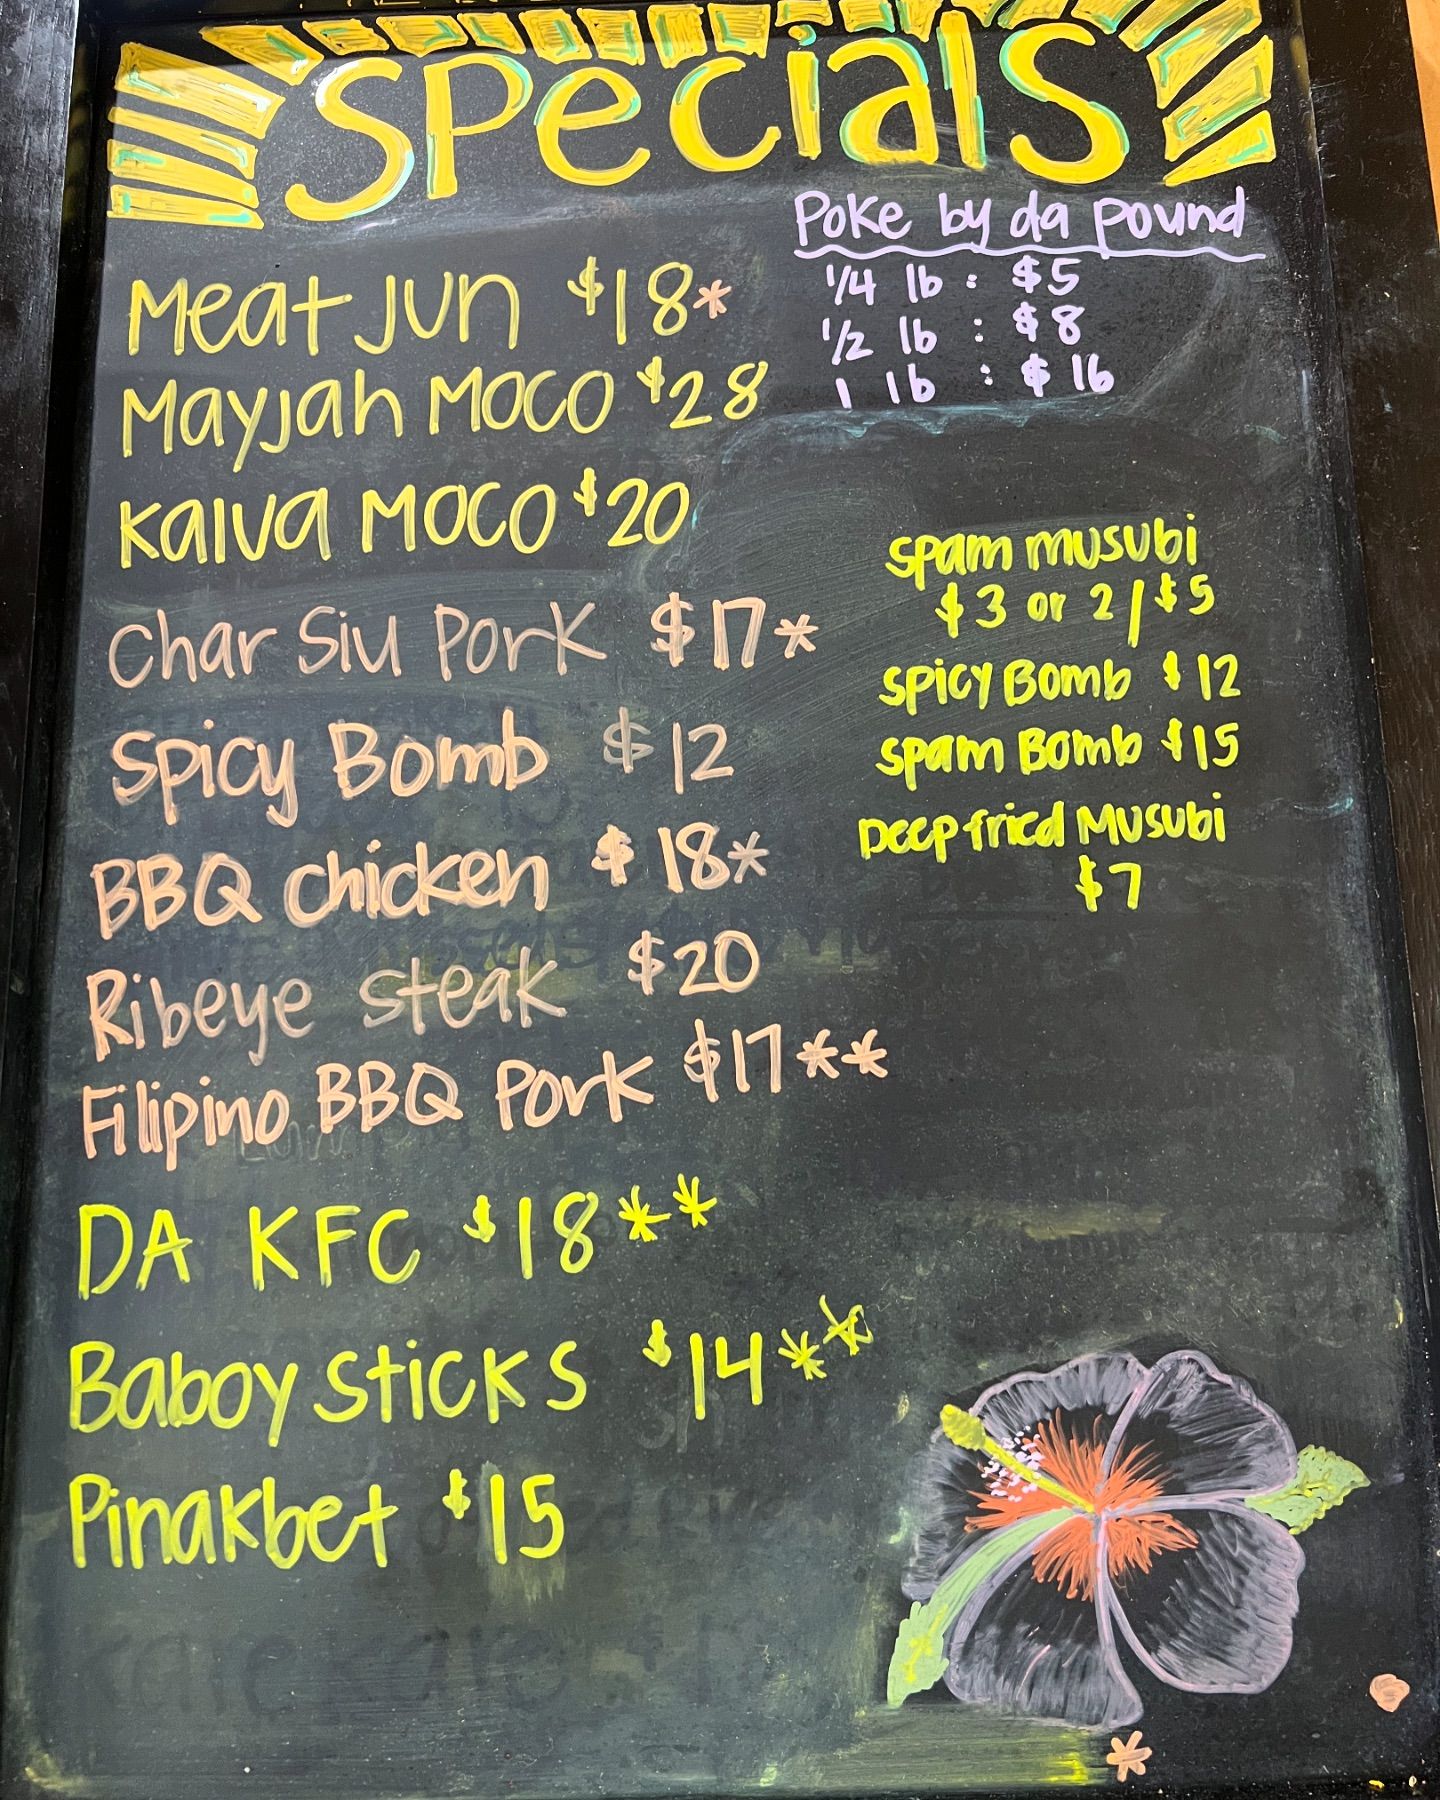 Specials
Poke by da pound
1/4 lb : $5
1/2 lb : $8
1 lb : $16
Meat Jun $18*
Mayjah Moco $28
Kalua Moco $20
Char Siu Pork $17*
Spicy Bomb $12
BBQ Chicken $18*
Ribeye Steak $20
Filipino BBQ Pork $17**
DA KFC $18**
Baboy Sticks $14**
Pinakbet $15
Spam Musubi
$3 or 2/$5
Spicy Bomb $12
Spam Bomb $15
Deep fried Musubi
$7
*